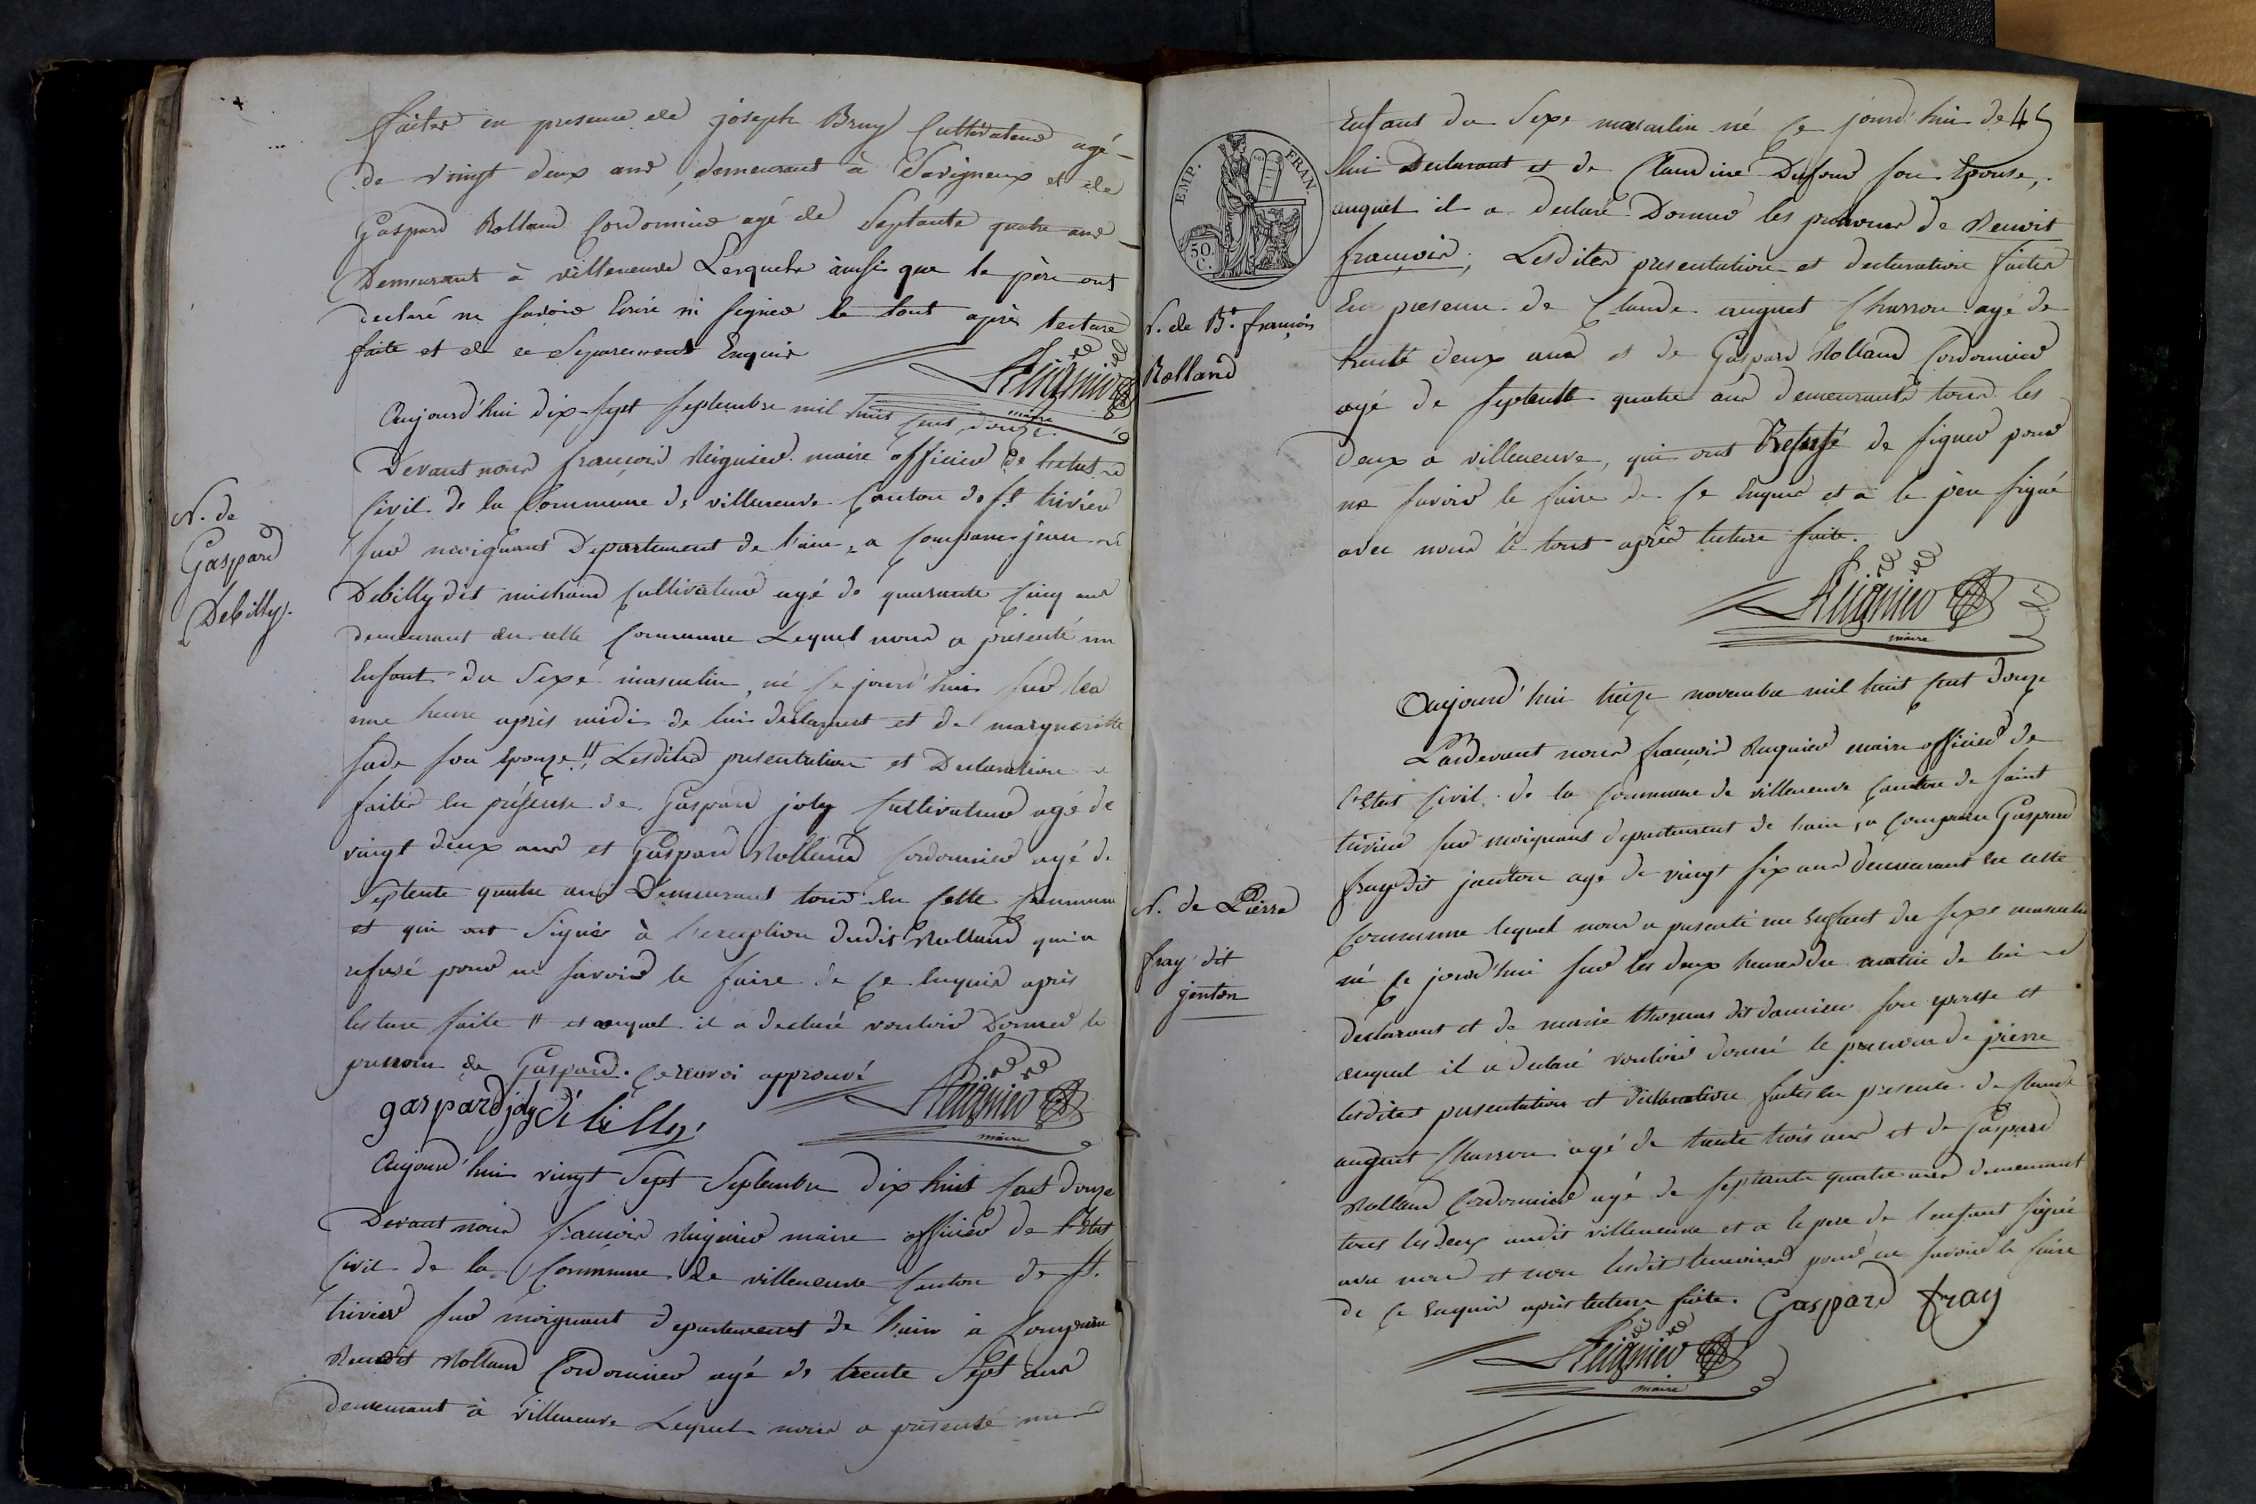 faites en presence de joseph Bruy Cultivateur agé
de vingt deux ans, demeurant à Savigneux et de
Gaspard Rolland Cordonnier agé de Septante quatre ans
Demeurant à villeneuve Lesquels ainsi que le père ont
declaré ne savoir Ecrire ni signer le tout après lecture
faite et de ce Séparement Enquis
maire
Aujourd'hui dix-sept septembre mil huit cent douze
Devant nous françois maire officier de l'etat
Civil de la Commune de villeneuve Canton de St trivier
sur moignans Departement de l'ain, a Comparu jean
Debilly dit michaud Cultivateur agé de quarante Cinq ans
demeurant en cette Commune Lequel nous a présenté un
Enfant du Sexe masculin, né ce jourd'hui sur les
une heure après midi de lui declarant et de margueritte
fade son Epouze !! Lesdites presentation et Declaration
faites en présence de Gaspard joly Cultivateur agé de
vingt deux ans et Gaspard Rolland Cordonnier agé de
Septente quatre ans Demeurant tous en cette Commune
et qui ont Signés à l'exception dudit Rolland qui a
refusé pour ne savoir le faire de ce Enquis après
lecture faite !! et auquel il a declaré vouloir Donner le
prenom de Gaspard. Ce renvoi approuvé
maire
gaspard joly débilly
N. de
Gaspard
Debilly.
Aujourd'hui vingt Sept Septembre dix huit cent douze
Devant nous françois maire officier de l'Etat
Civil de la Commune de villeneuve Canton de St.
trivier sur moignant departement de l'ain a comparu
Benoit Rolland Cordonnier agé de trente Sept ans
demeurant à villeneuve Lequel nous a présenté un
45
EMP. FRAN.
50 C.
Enfant du Sexe masculin né ce jourd'hui de
lui Declarant et de Claudine Dufour son Epouse,
auquel il a declaré Donner les prenoms de Benoit
françois, Lesdites presentation et declaration faites
En presence de Claude auguet Charron agé de
trente deux ans et de Gaspard Rolland Cordonnier
agé de septente quatre ans demeurants tous les
deux a villeneuve, qui ont Refusé de signer pour
ne savoir le faire de ce Enquis et à le père signé
avec nous le tout après lecture faite.
maire
N. de Bt. françois
Rolland
Aujourd'hui treize novembre mil huit cent douze
Pardevant nous françois maire officier de
l'Etat Civil de la Commune de villeneuve Canton de saint
trivier sur moignans departement de l'ain, a Comparu Gaspard
fray dit jenton agé de vingt six ans demeurant en cette
Commune lequel nous a presenté un Enfant du sexe masculin
né ce jourd'hui sur les deux heures du matin de lui
declarant et de marie thomas dit damien son epouse et
auquel il a declaré vouloir donné le prenom de pierre
lesdites presentation et declaration faites en presence de Claude
auguet Charron agé de trente trois ans et de Gaspard
Rolland Cordonnier agé de septante quatre ans demeurant
tous les deux audit villeneuve et a le pere de l'enfant signé
avec nous et non lesdits temoins pour ne savoir le faire
de ce Enquis après lecture faite. Gaspard fray
maire
N. de Pierre
fray dit
jenton